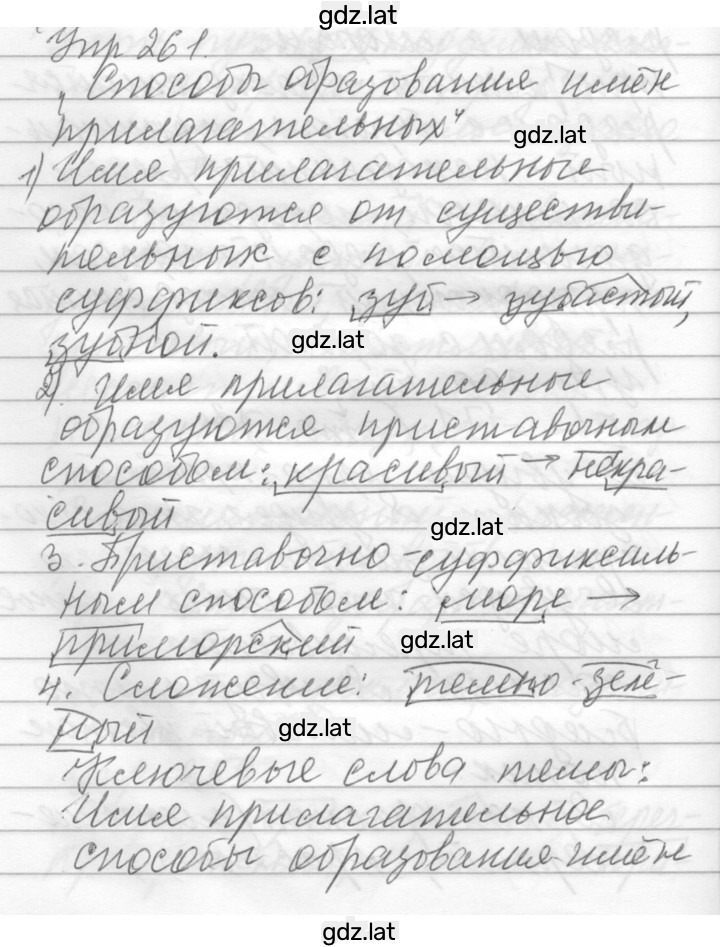 gdz.lat
Упр 261.
„Способы образования имён
прилагательных"
gdz.lat
1) Имя прилагательные
образуются от существи-
тельных с помощью
суффиксов: зуб → зубастый,
зубной.
gdz.lat
2) Имя прилагательные
образуются приставочным
способом: красивый → некра-
сивый
gdz.lat
3. Приставочно-суффиксаль-
ным способом: море →
приморский
gdz.lat
4. Сложение: темно-зелё-
ный
gdz.lat
Ключевые слова темы:
Имя прилагательное
способы образования имён
gdz.lat